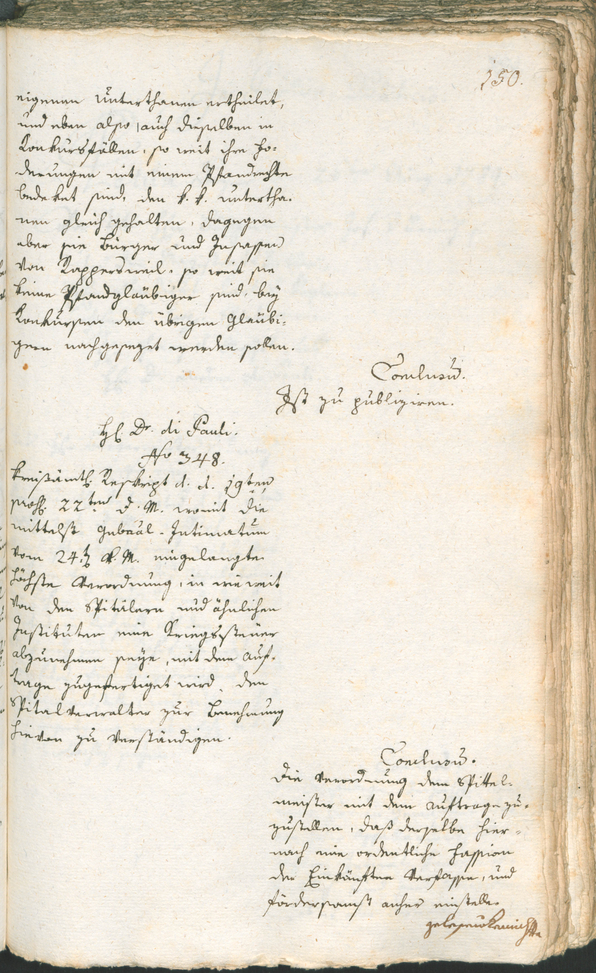 150.
eigenen Unterthanen ertheilet,
und eben also auch dieselben in
Konkursfällen, so weit ihre For-
derungen mit einem Pfandrechte
bedeket sind, den k. k. Untertha-
nen gleich gehalten, dagegen
aber sie Bürger und Insassen
von Rapperschweil, so weit sie
keine Pfandgläubiger sind, bey
Konkursen den übrigen Gläubi-
gern nachgesezet werden sollen.
Conclusum.
Ist zu publiziren.
H. Dr. di Pauli.
No 348.
Kreisämtl. Reskript d. d. 19ten
22ten d. M. womit die
mittelst Gubernial-Intimatum
vom 24. v. M. eingelangte
höchste Verordnung, in wie weit
von den Spitälern und ähnlichen
Instituten eine Kriegssteuer
abzunehmen seye, mit dem Auf-
trage zugefertiget wird, den
Spitalverwalter zur Benehmung
hievon zu verständigen.
Conclusum.
Die Verordnung dem Spittel-
meister mit dem Auftrage zu-
zustellen, daß derselbe hier-
nach eine ordentliche Fassion
der Einkünften verfasse, und
fördersamst anher einstelle.